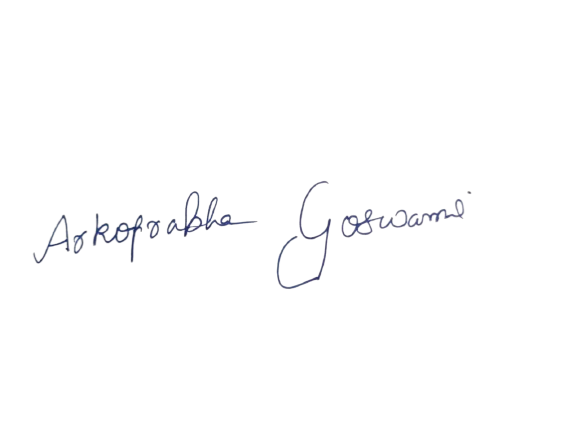 Arkoprabha Goswami